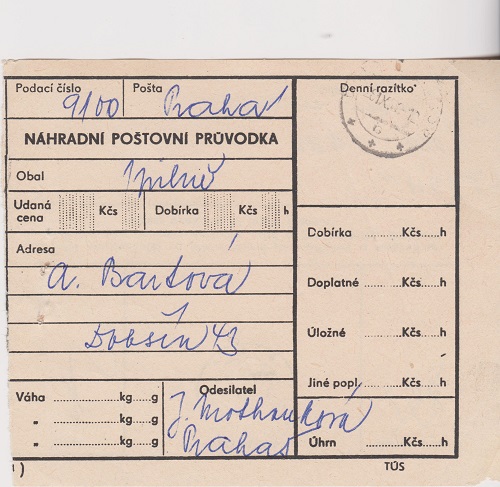 Podací číslo 9100 Pošta Praha 1 Denní razítko
NÁHRADNÍ POŠTOVNÍ PRŮVODKA
Obal
Udaná cena Kčs Dobírka h
Dobírka ............Kčs......h
Adresa
A. Bartová
Doplatné ............Kčs......h
Dobšín 43
Úložné ............Kčs......h
Jiné popl. ............Kčs......h
Váha ............kg......g Odesilatel
„ ............kg......g J.
„ ............kg......g Praha
Úhrn ............Kčs......h
) TÚS